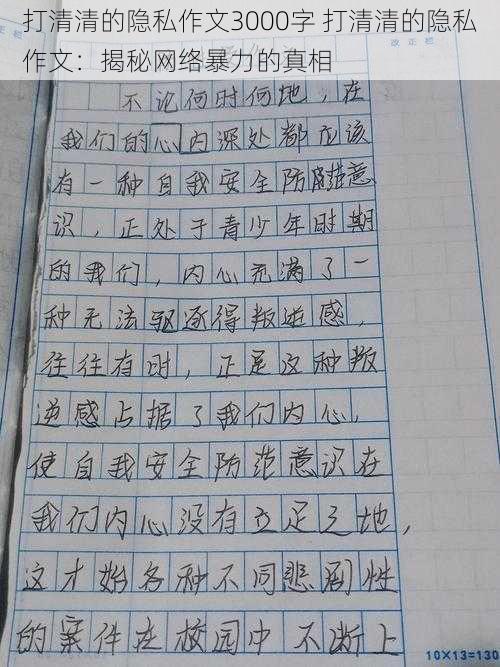 打清清的隐私作文3000字 打清清的隐私
作文：揭秘网络暴力的真相
正栏
不论何时何地，在
我们的心内深处都应该
有一种自我安全防范意
识，正处于青少年时期
的我们，内心充满了一
种无法驱逐得叛逆感，
往往有时，正是这种叛
逆感占据了我们内心，
使自我安全防范意识在
我们内心没有立足之地，
这才始各种不同悲剧性
的案件在校园中不断上
10×13=130